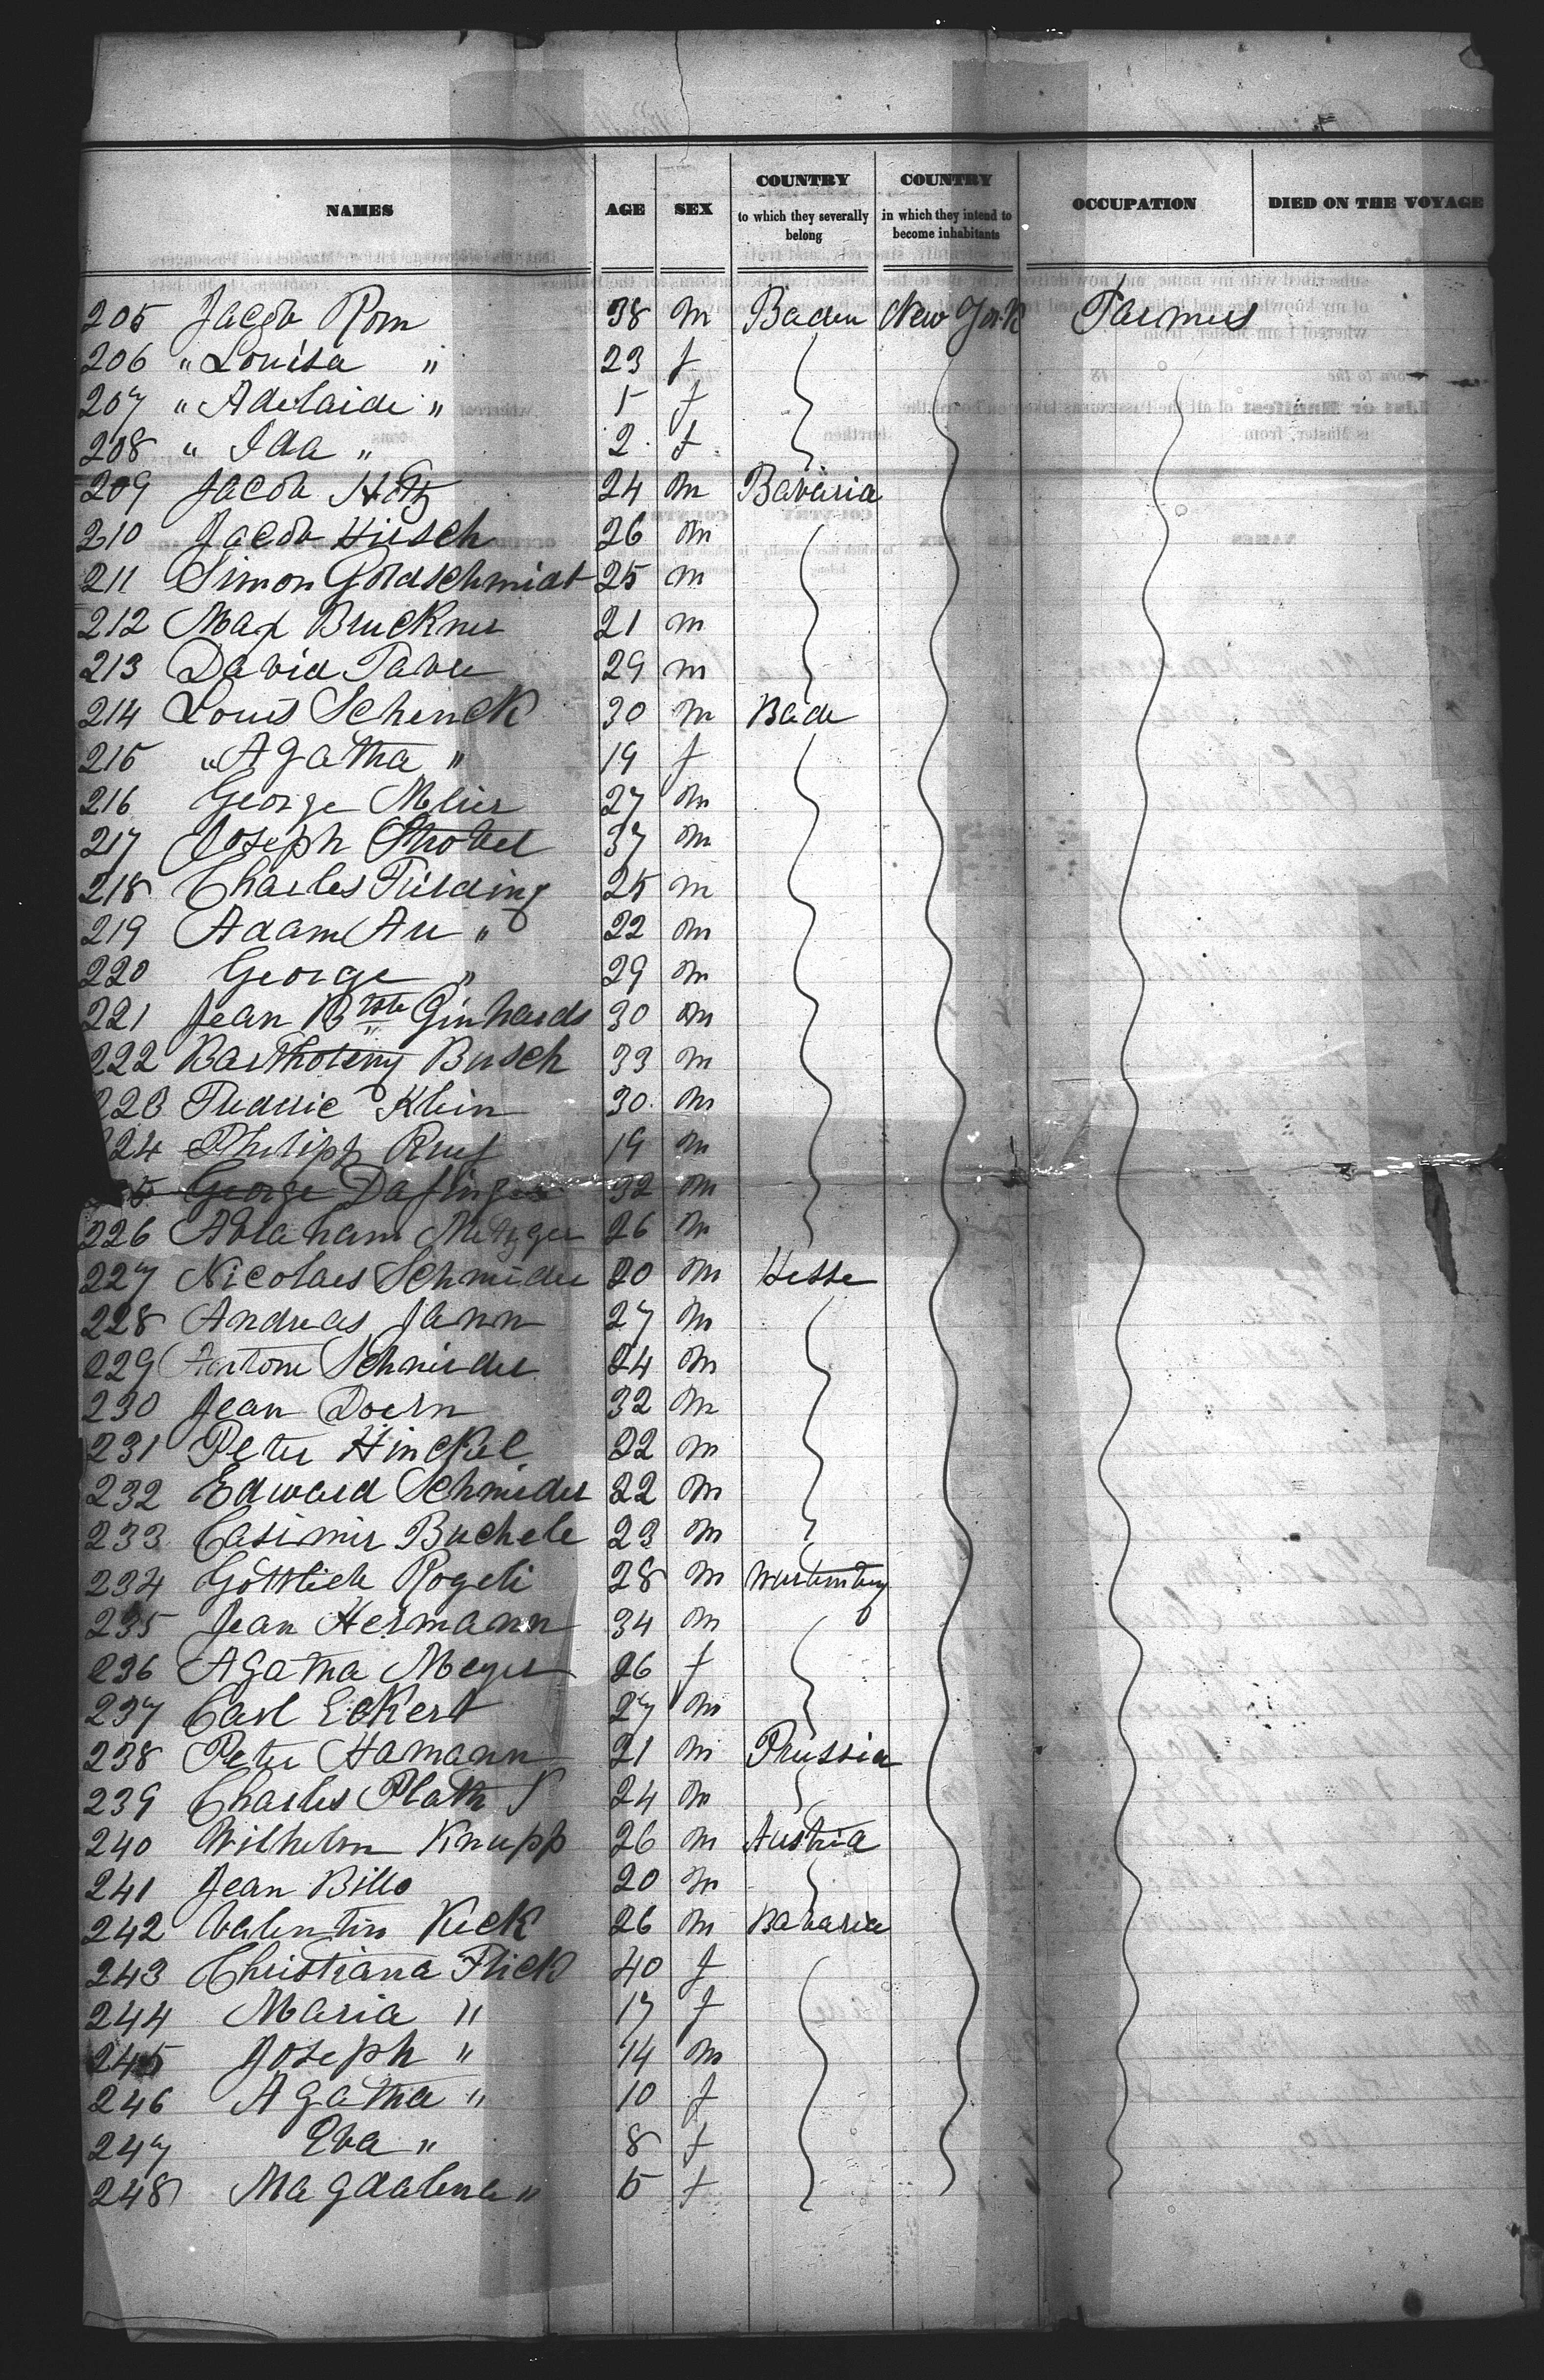 NAMES AGE SEX COUNTRY to which they severally belong COUNTRY in which they intend to become inhabitants OCCUPATION DIED ON THE VOYAGE
205 Jacob Rom 38 m Baden New York Farmers
206 " Louisa " 23 f
207 " Adelaide " 5 f
208 " Ida " 2 f
209 Jacob Hotz 24 m Bavaria
210 Jacob Hirsch 26 m
211 Simon Goldschmidt 25 m
212 Max Bruckner 21 m
213 David 29 m
214 Louis Schenck 30 m Bade
215 " Agatha " 19 f
216 George Meier 27 m
217 Joseph Strobel 37 m
218 Charles Fielding 25 m
219 Adam 22 m
220 George " 29 m
221 Jean Bte 30 m
222 Bartholemy Busch 33 m
223 Klein 30 m
224 Philipp Ruf 19 m
George Daflinger 32 m
226 Abraham Metzger 26 m
227 Nicolaes Schmider 20 m Hesse
228 Andreas Jann 27 m
229 Antoni Schneider 24 m
230 Jean Doern 32 m
231 Peter Hinckel 22 m
232 Edward Schmider 22 m
233 Casimir Buchele 23 m
234 Gottlieb Rogeli 28 m Wurtemburg
235 Jean Hermann 34 m
236 Agatha Meyer 26 f
237 Carl Eckert 27 m
238 Peter Hamann 21 m Prussia
239 Charles Plath 24 m
240 Wilhelm Knupp 26 m Austria
241 Jean Billo 20 m
242 Valentin Keck 26 m Bavaria
243 Christiana Flick 40 f
244 Maria " 17 f
245 Joseph " 14 m
246 Agatha " 10 f
247 Eva " 8 f
248 Magdalena " 5 f